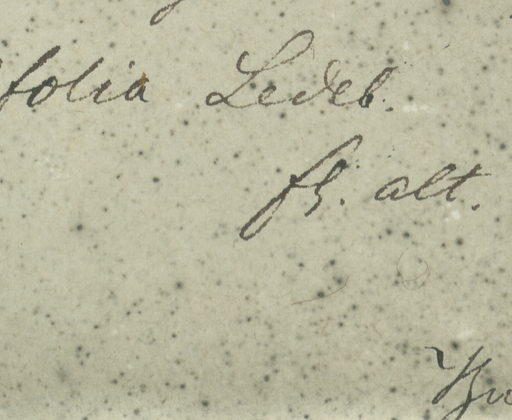 folia Ledeb.
fl. alt.